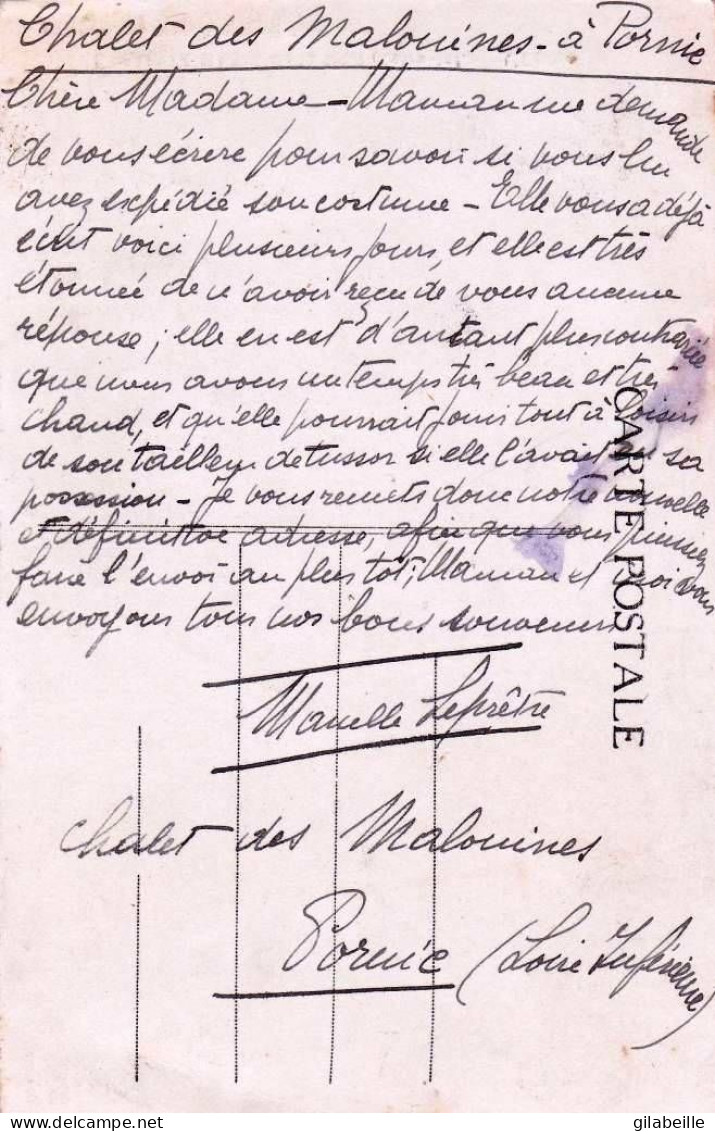 Chalet des Malouines - à Pornic
Chère Madame - Maman me demande
de vous écrire pour savoir si vous lui
avez expédié son costume - Elle vous a déjà
écrit voici plusieurs jours, et elle est très
étonnée de n'avoir reçu de vous aucune
réponse; elle en est d'autant plus contrariée
que nous avons un temps très beau et très
chaud, et qu'elle pourrait jouir tout à loisir
de son tailleur de tussor si elle l'avait en sa
possession - Je vous remets donc notre nouvelle
et définitive adresse, afin que vous puissiez
faire l'envoi au plus tôt; Maman et moi vous
envoyons tous nos bons souvenirs
Marcelle Leprêtre
Chalet des Malouines
Pornic (Loire Inférieure)
CARTE POSTALE
delcampe.net
gilabeille